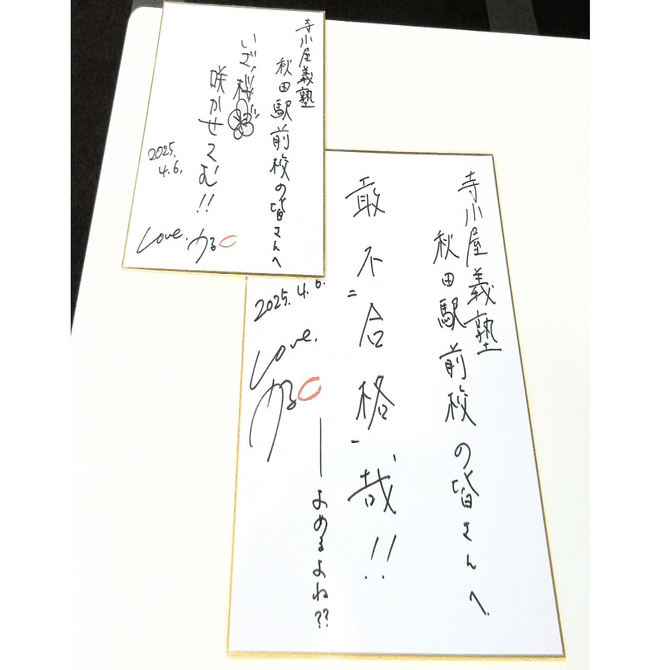 寺小屋義塾
秋田駅前校の皆さんへ
いざ、桜
咲かせてむ!!
2025.
4.6.
Love.
かる
寺小屋義塾
秋田駅前校の皆さんへ
敢不二合格一哉!!
——よめるよね??
2025.4.6.
Love.
かる